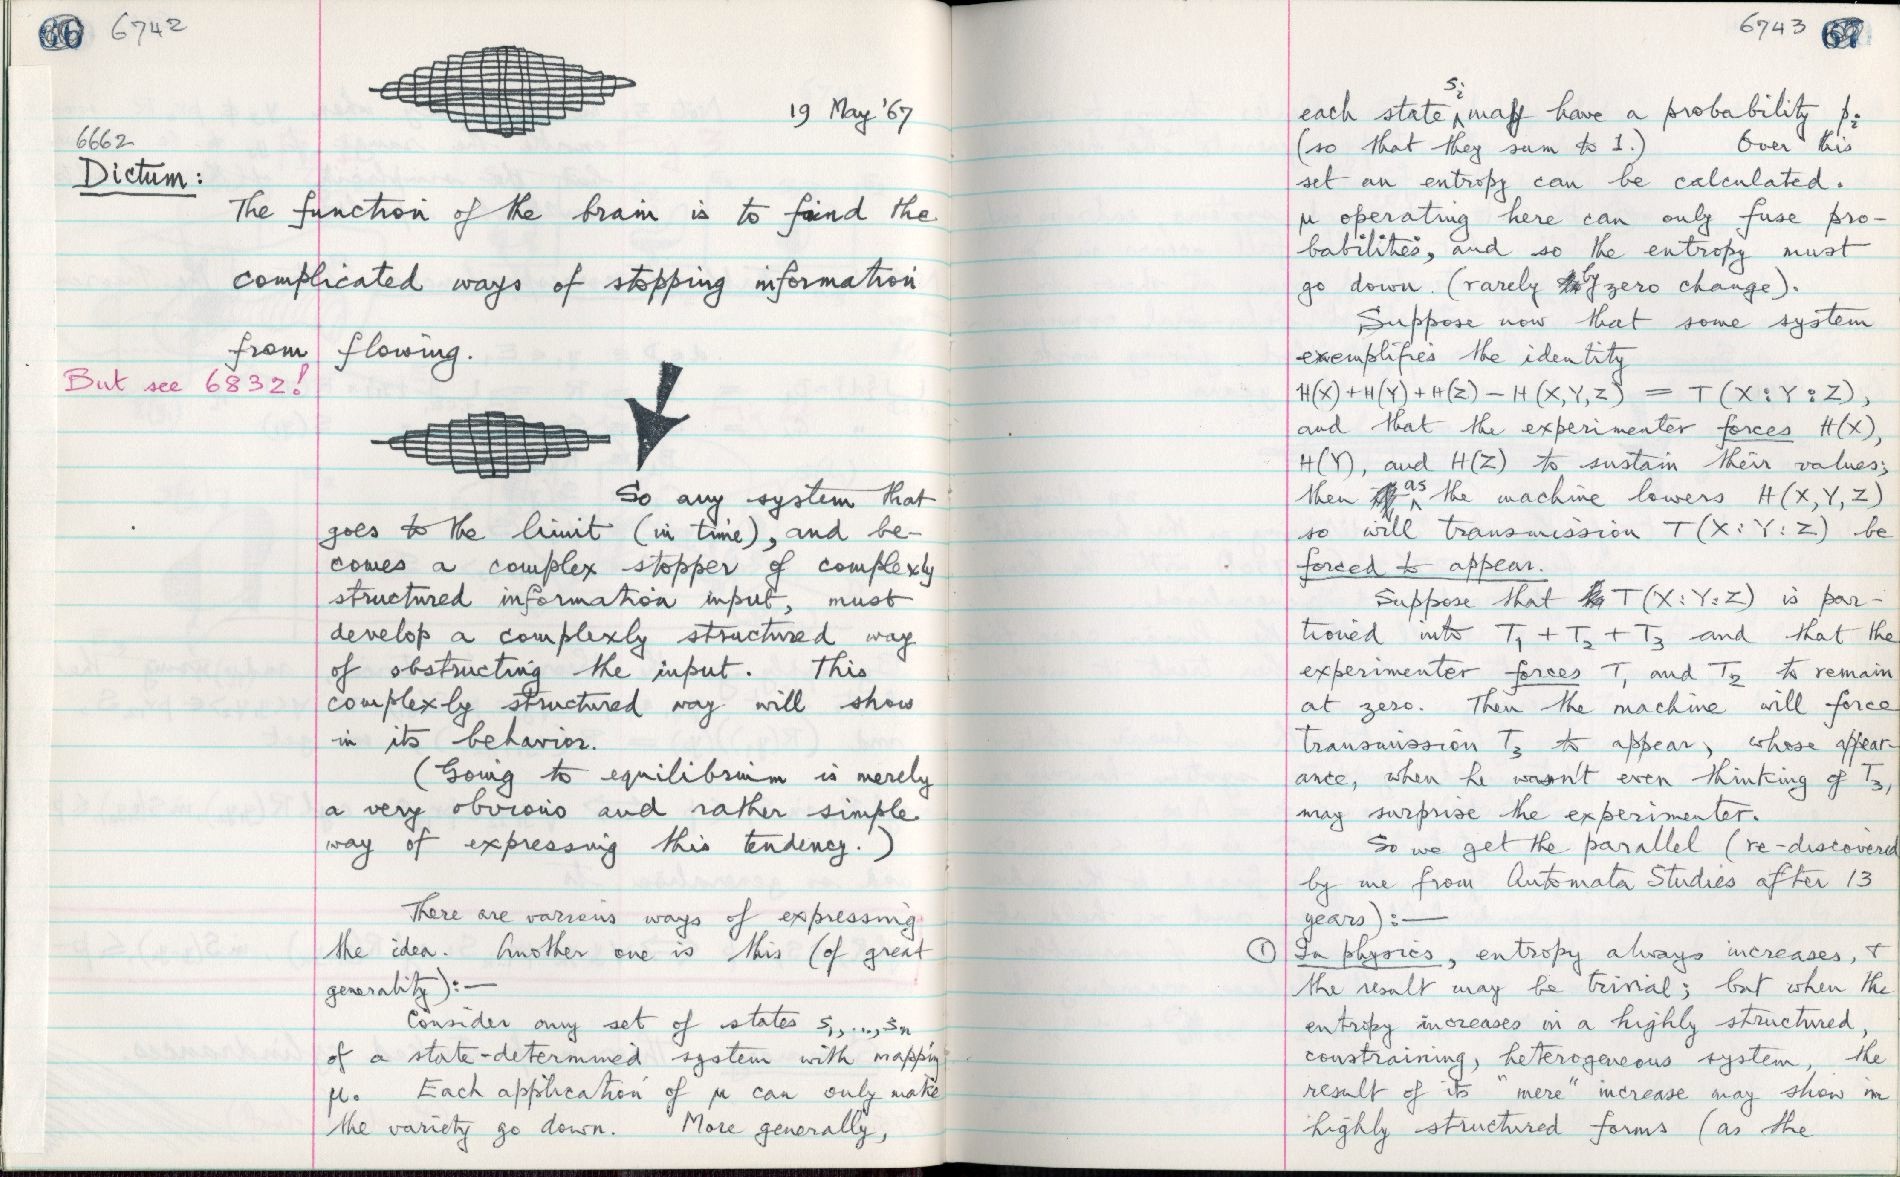 66 6742
19 May '67
6662
Dictum:
The function of the brain is to find the
complicated ways of stopping information
from flowing.
But see 6832!
So any system that
goes to the limit (in time), and be-
comes a complex stopper of complexly
structured information input, must
develop a complexly structured way
of obstructing the input. This
complexly structured way will show
in its behavior.
(Going to equilibrium is merely
a very obvious and rather simple
way of expressing this tendency.)
There are various ways of expressing
the idea. Another one is this (of great
generality):—
Consider any set of states s₁,...,sₙ
of a state-determined system with mapping
μ. Each application of μ can only make
the variety go down. More generally,
6743 67
each state sᵢ may have a probability pᵢ
(so that they sum to 1.) Over this
set an entropy can be calculated.
μ operating here can only fuse pro-
babilities, and so the entropy must
go down. (rarely by zero change).
Suppose now that some system
exemplifies the identity
H(X)+H(Y)+H(Z)-H(X,Y,Z) = T(X:Y:Z),
and that the experimenter forces H(X),
H(Y), and H(Z) to sustain their values;
then as the machine lowers H(X,Y,Z)
so will transmission T(X:Y:Z) be
forced to appear.
Suppose that T(X:Y:Z) is par-
tioned into T₁ + T₂ + T₃ and that the
experimenter forces T₁ and T₂ to remain
at zero. Then the machine will force
transmission T₃ to appear, whose appear-
ance, when he wasn't even thinking of T₃,
may surprise the experimenter.
So we get the parallel (re-discovered
by me from Automata Studies after 13
years):—
① In physics, entropy always increases, +
the result may be trivial; but when the
entropy increases in a highly structured,
constraining, heterogeneous system, the
result of its "mere" increase may show in
highly structured forms (as the